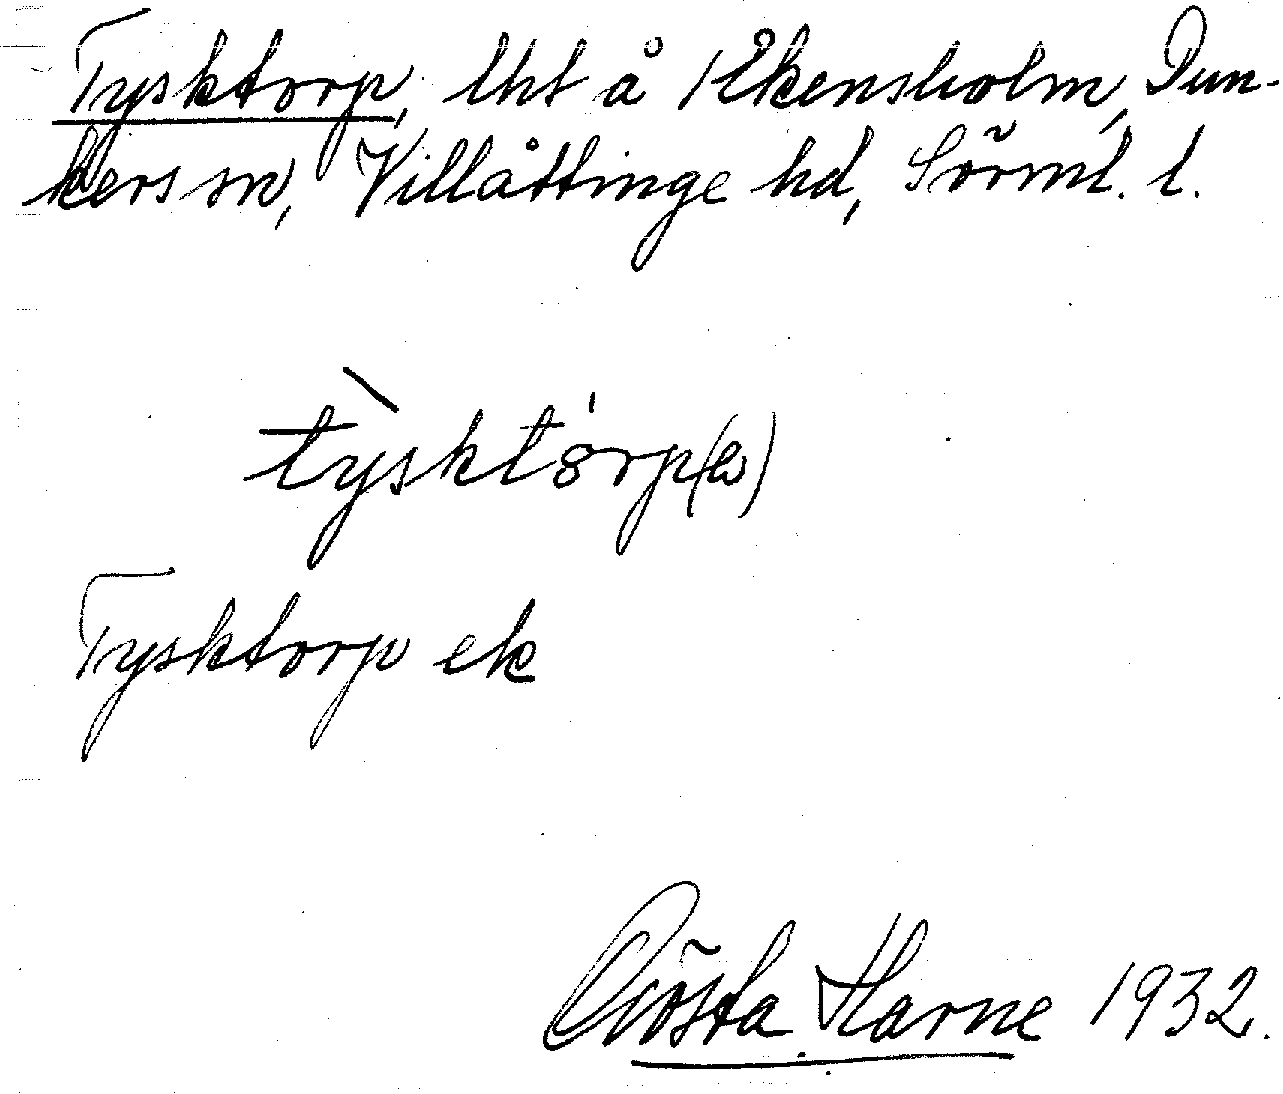 Tysktorp, lht å Åkensholm, Dun-
kers sn, Villåttinge hd, Sörml. l.
tỳskt8́rp(ɷ)
Tysktorp ek
Gösta Harne 1932.